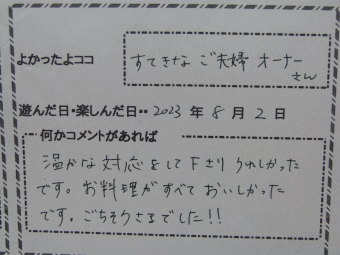 よかったよココ
すてきな ご夫婦 オーナー
さん
遊んだ日・楽しんだ日・・ 2023 年 8 月 2 日
何かコメントがあれば
温かな対応をして下さり うれしかった
です。お料理がすべておいしかった
です。ごちそうさまでした!!